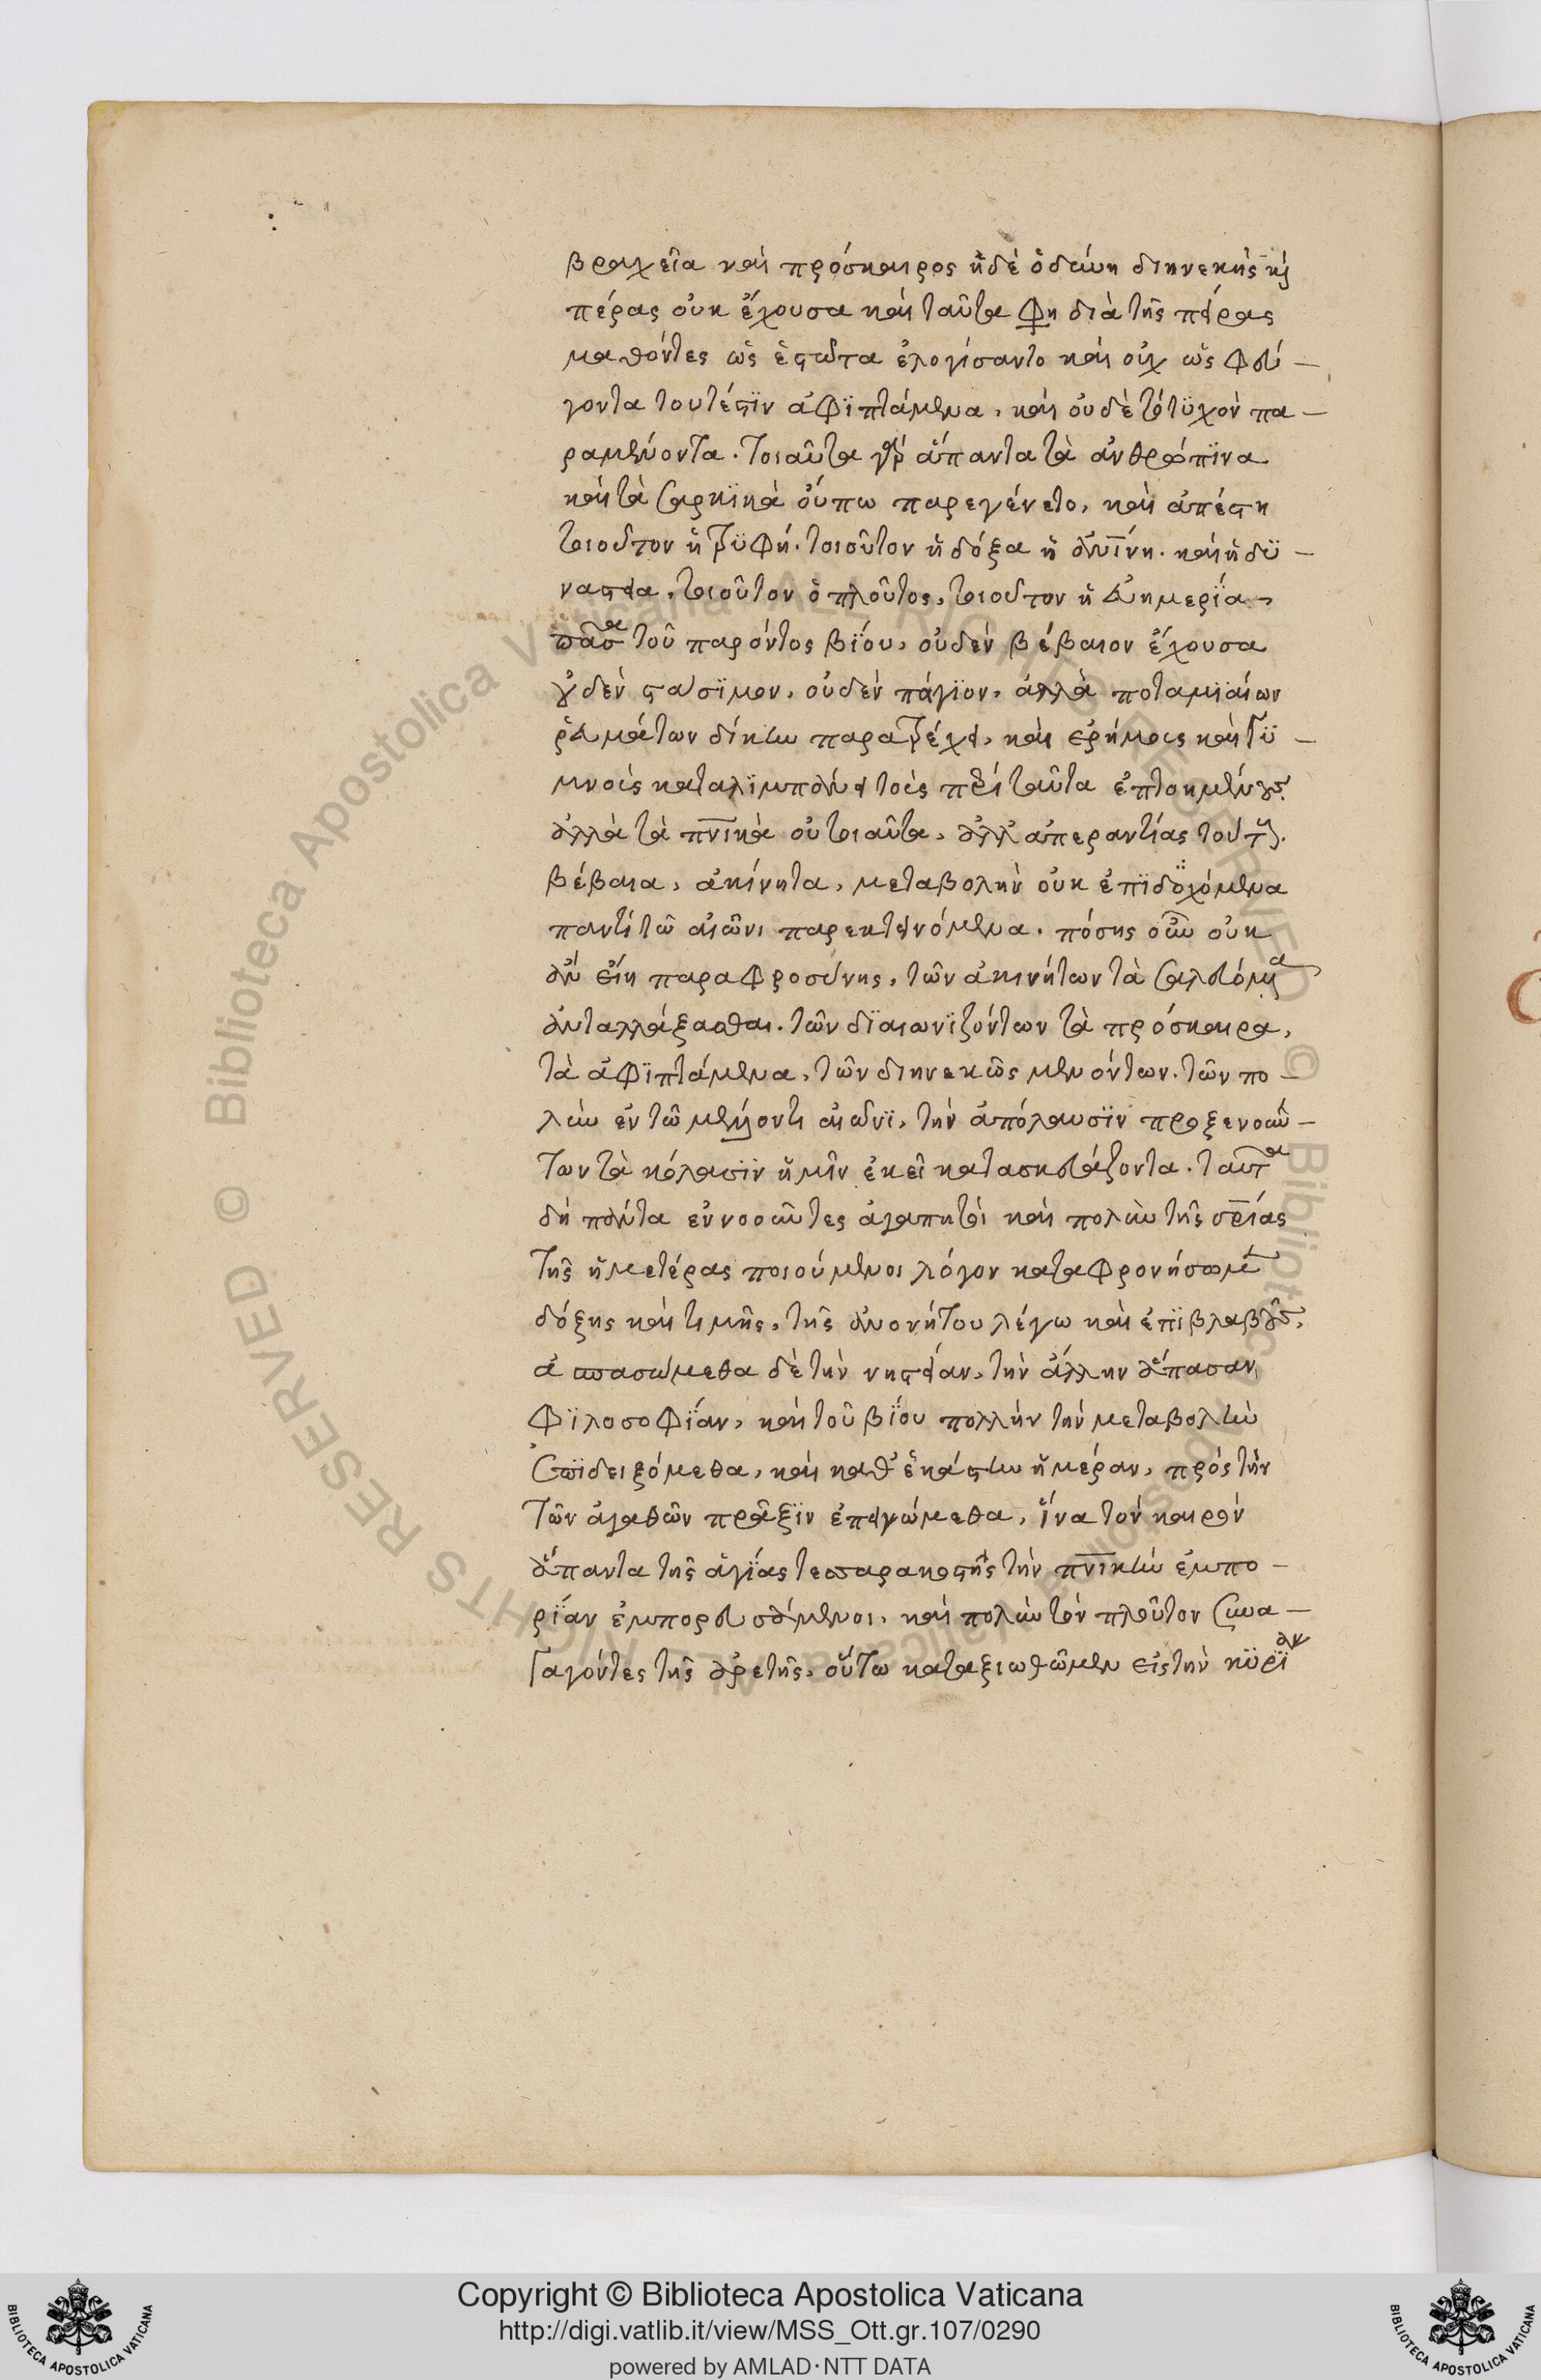 βραχεῖα καὶ πρόσκαιρος ἡδὲ ὀδύνη διηνεκὴς καὶ
πέρας οὐκ ἔχουσα καὶ ταῦτα φη διὰ τῆς πείρας
μαθόντες ὡς ἑστῶτα ἐλογίσαντο καὶ οὐχ ὡς φεύ-
γοντα τουτέστϊν ἀφϊπτάμενα, καὶ οὐδὲ τὸ τϋχὸν πα-
ραμένοντα. τοιαῦτα γὰρ ἅπαντα τὰ ἀνθρώπϊνα
καὶ τὰ σαρκϊκὰ οὔπω παρεγένετο, καὶ ἀπέστη
τοιοῦτον ἡ τρϋφή. τοιοῦτον ἡ δόξα ἡ ἀνίνη. καὶ ἡ δϋ-
ναστεία, τοιοῦτον ὁ πλοῦτος, τοιοῦτον ἡ εὐημερϊά,
πᾶσα τοῦ παρόντος βϊόυ, οὐδὲν βέβαιον ἔχουσα
οὐδὲν στάσϊμον, οὐδὲν πάγϊον, ἀλλὰ ποταμϊαίων
ῥευμάτων δίκην παρατρέχει, καὶ ἐρήμους καὶ γϋ-
μνοὺς καταλϊμπάνει τοὺς περὶ ταῦτα ἐπτοημένους.
ἀλλὰ τὰ πνικὰ οὐ τοιαῦτα, ἀλλ' ἀπεραντίας τούτων.
βέβαια, ἀκίνητα, μεταβολὴν οὐκ ἐπϊδεχόμενα
παντὶ τῶ αἰῶνι παρεκτεινόμενα. πόσης οὖν οὐκ
ἂν εἴη παραφροσύνης, τῶν ἀκινήτων τὰ σαλευόμενα
ἀνταλλάξασθαι. τῶν δϊαιωνϊζόντων τὰ πρόσκαιρα,
τὰ ἀφϊπτάμενα, τῶν διηνεκῶς μενόντων. τῶν πο-
λὺν ἐν τῶ μέλλοντι αἰῶνϊ, τὴν ἀπόλαυσϊν προξενούν-
των τὰ κόλασϊν ἡμῖν ἐκεῖ κατασκευάζοντα. ταῦτα
δὴ πάντα ἐννοοῦντες ἀγαπητοὶ καὶ πολὺν τῆς σρίας
τῆς ἡμετέρας ποιούμενοι λόγον καταφρονήσωμεν
δόξης καὶ τιμῆς, τῆς ἀνονήτου λέγω καὶ ἐπϊβλαβοῦς,
ἀσπασώμεθα δὲ τὴν νηστείαν, τὴν ἄλλην ἅπασαν
φϊλοσοφϊάν, καὶ τοῦ βϊόυ πολλὴν τὴν μεταβολὴν
ἐπϊδειξόμεθα, καὶ καθ' ἑκάστην ἡμέραν, πρὸς τὴν
τῶν ἀγαθῶν πρᾶξϊν ἐπειγώμεθα, ἵνα τὸν καιρὸν
ἅπαντα τῆς ἁγϊάς τεσσαρακοστῆς τὴν πνικὴν ἐμπο-
ρϊάν ἐμπορευσάμενοι, καὶ πολὺν τὸν πλοῦτον συνα-
γαγόντες τῆς ἀρετῆς, οὕτω καταξιωθῶμεν εἰς τὴν κϋρϊαν